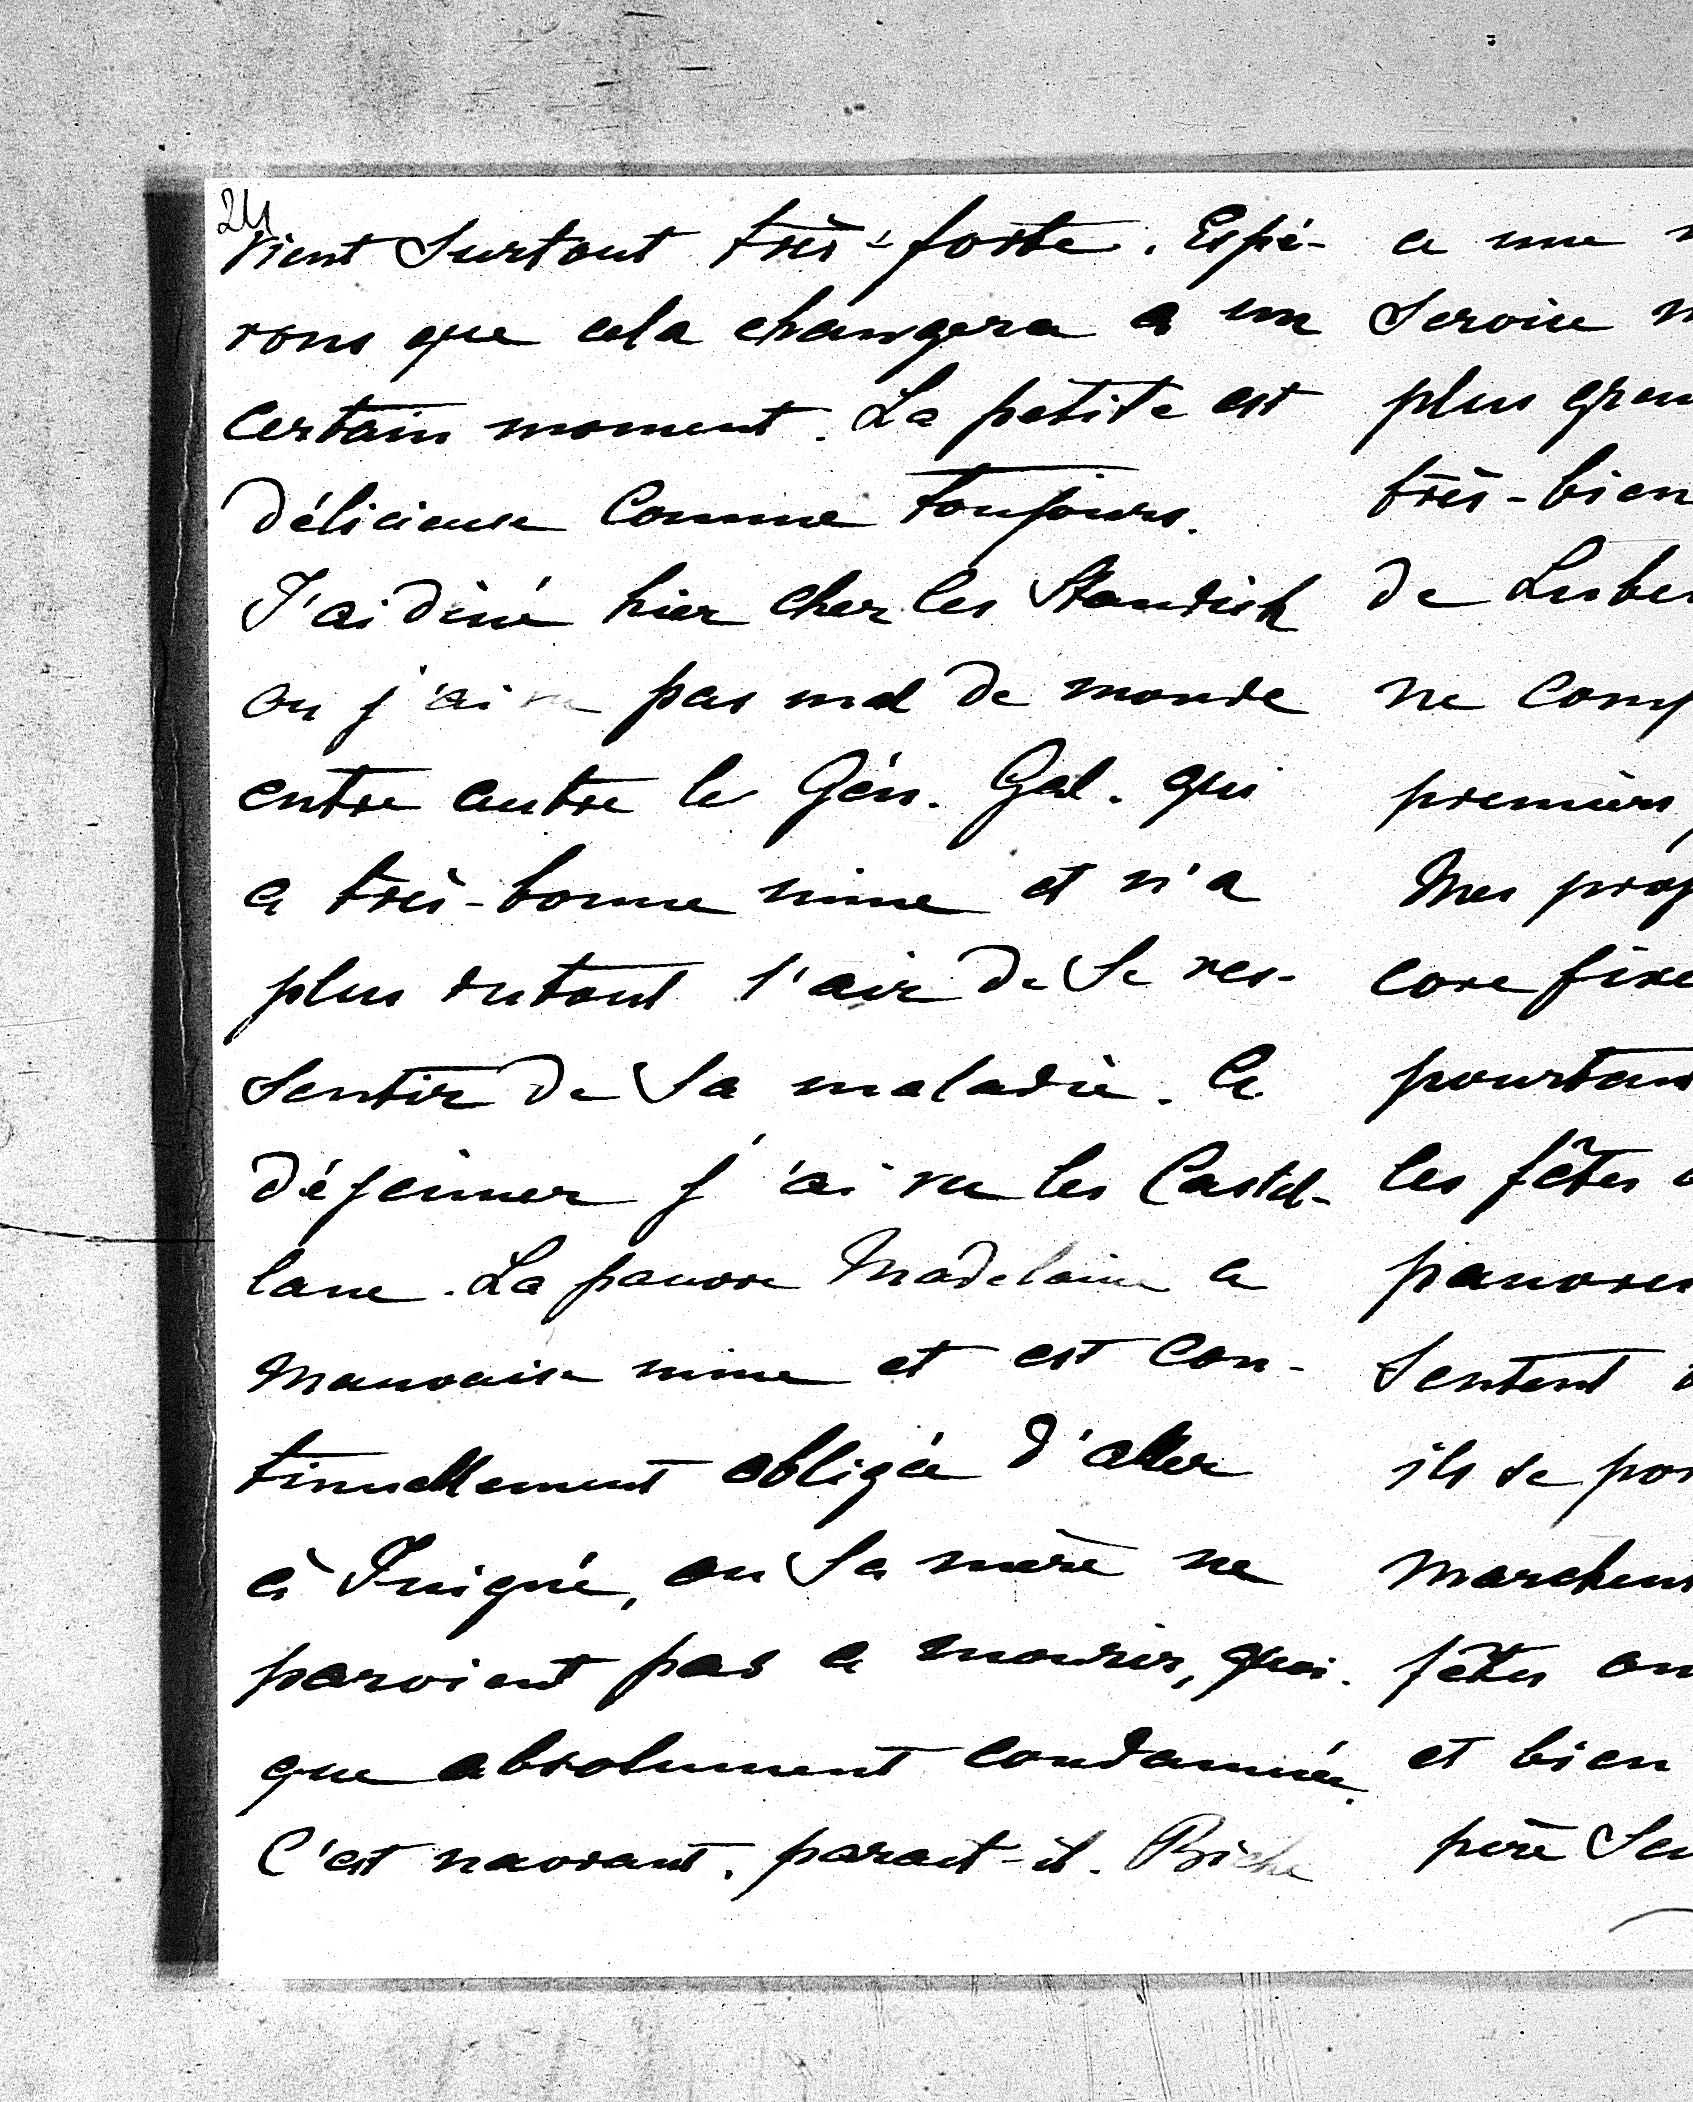 24
vient surtout très-forte. Espé-
rons que cela changera a un
certain moment. La petite est
délicieuse comme toujours.
J'ai diné hier chez les Standish
ou j'ai vu pas mal de monde
entre autre le Gén. Gal. qui
a très-bonne mine et n'a
plus du tout l'air de se res-
sentir de sa maladie. A
déjeuner j'ai vu les Castel-
lane. La pauvre Madelaine a
mauvaise mine et est con-
tinuellement obligée d'aller
à Juigné, ou sa mère ne
parvient pas a mourir, quoi-
que absolument condamnée.
C'est navrant, parait-il. Biche
a une
service
plus gran
très-bien
de Luber
ne comp
premiers
Mes proj
core fixe
pourtan
les fêtes
pauvres
sentent
ils se por
marchent
fêtes on
et bien
père Se